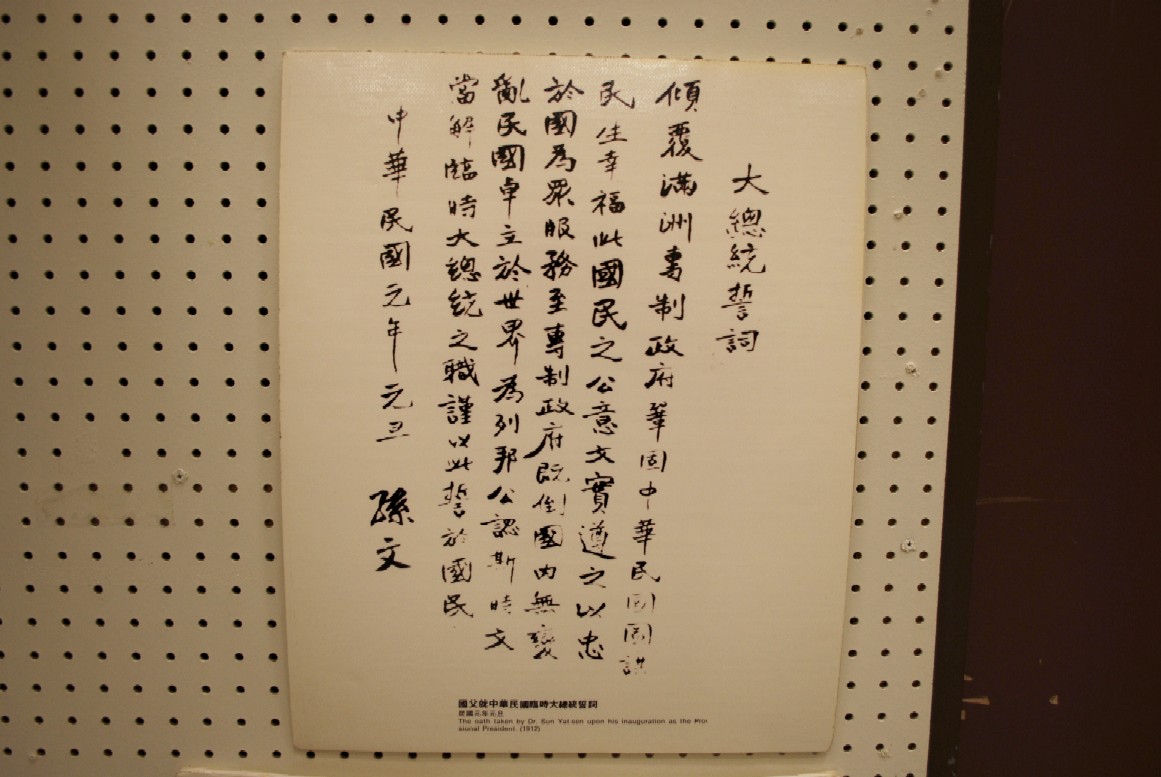 大總統誓詞
傾覆滿洲專制政府鞏固中華民國圖謀
民生幸福此國民之公意文實遵之以忠
於國為眾服務至專制政府既倒國內無變
亂民國卓立於世界為列邦公認斯時文
當解臨時大總統之職謹以此誓於國民
中華民國元年元旦 孫文
國父就中華民國臨時大總統誓詞
民國元年元旦
The oath taken by Dr. Sun Yat-sen upon his inauguration as the Provi
sional President. (1912)